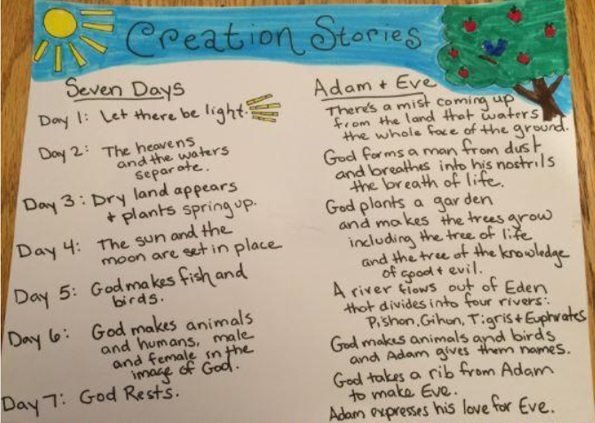 Creation Stories
Seven Days
Day 1: Let there be light.
Day 2: The heavens
and the waters
separate.
Day 3: Dry land appears
+ plants spring up.
Day 4: The sun and the
moon are set in place
Day 5: God makes fish and
birds.
Day 6: God makes animals
and humans, male
and female in the
image of God.
Day 7: God Rests.
Adam + Eve
There's a mist coming up
from the land that waters
the whole face of the ground.
God forms a man from dust
and breathes into his nostrils
the breath of life.
God plants a garden
and makes the trees grow
including the tree of life
and the tree of the knowledge
of good + evil.
A river flows out of Eden
that divides into four rivers:
Pishon, Gihon, Tigris + Euphrates
God makes animals and birds
and Adam gives them names.
God takes a rib from Adam
to make Eve.
Adam expresses his love for Eve.